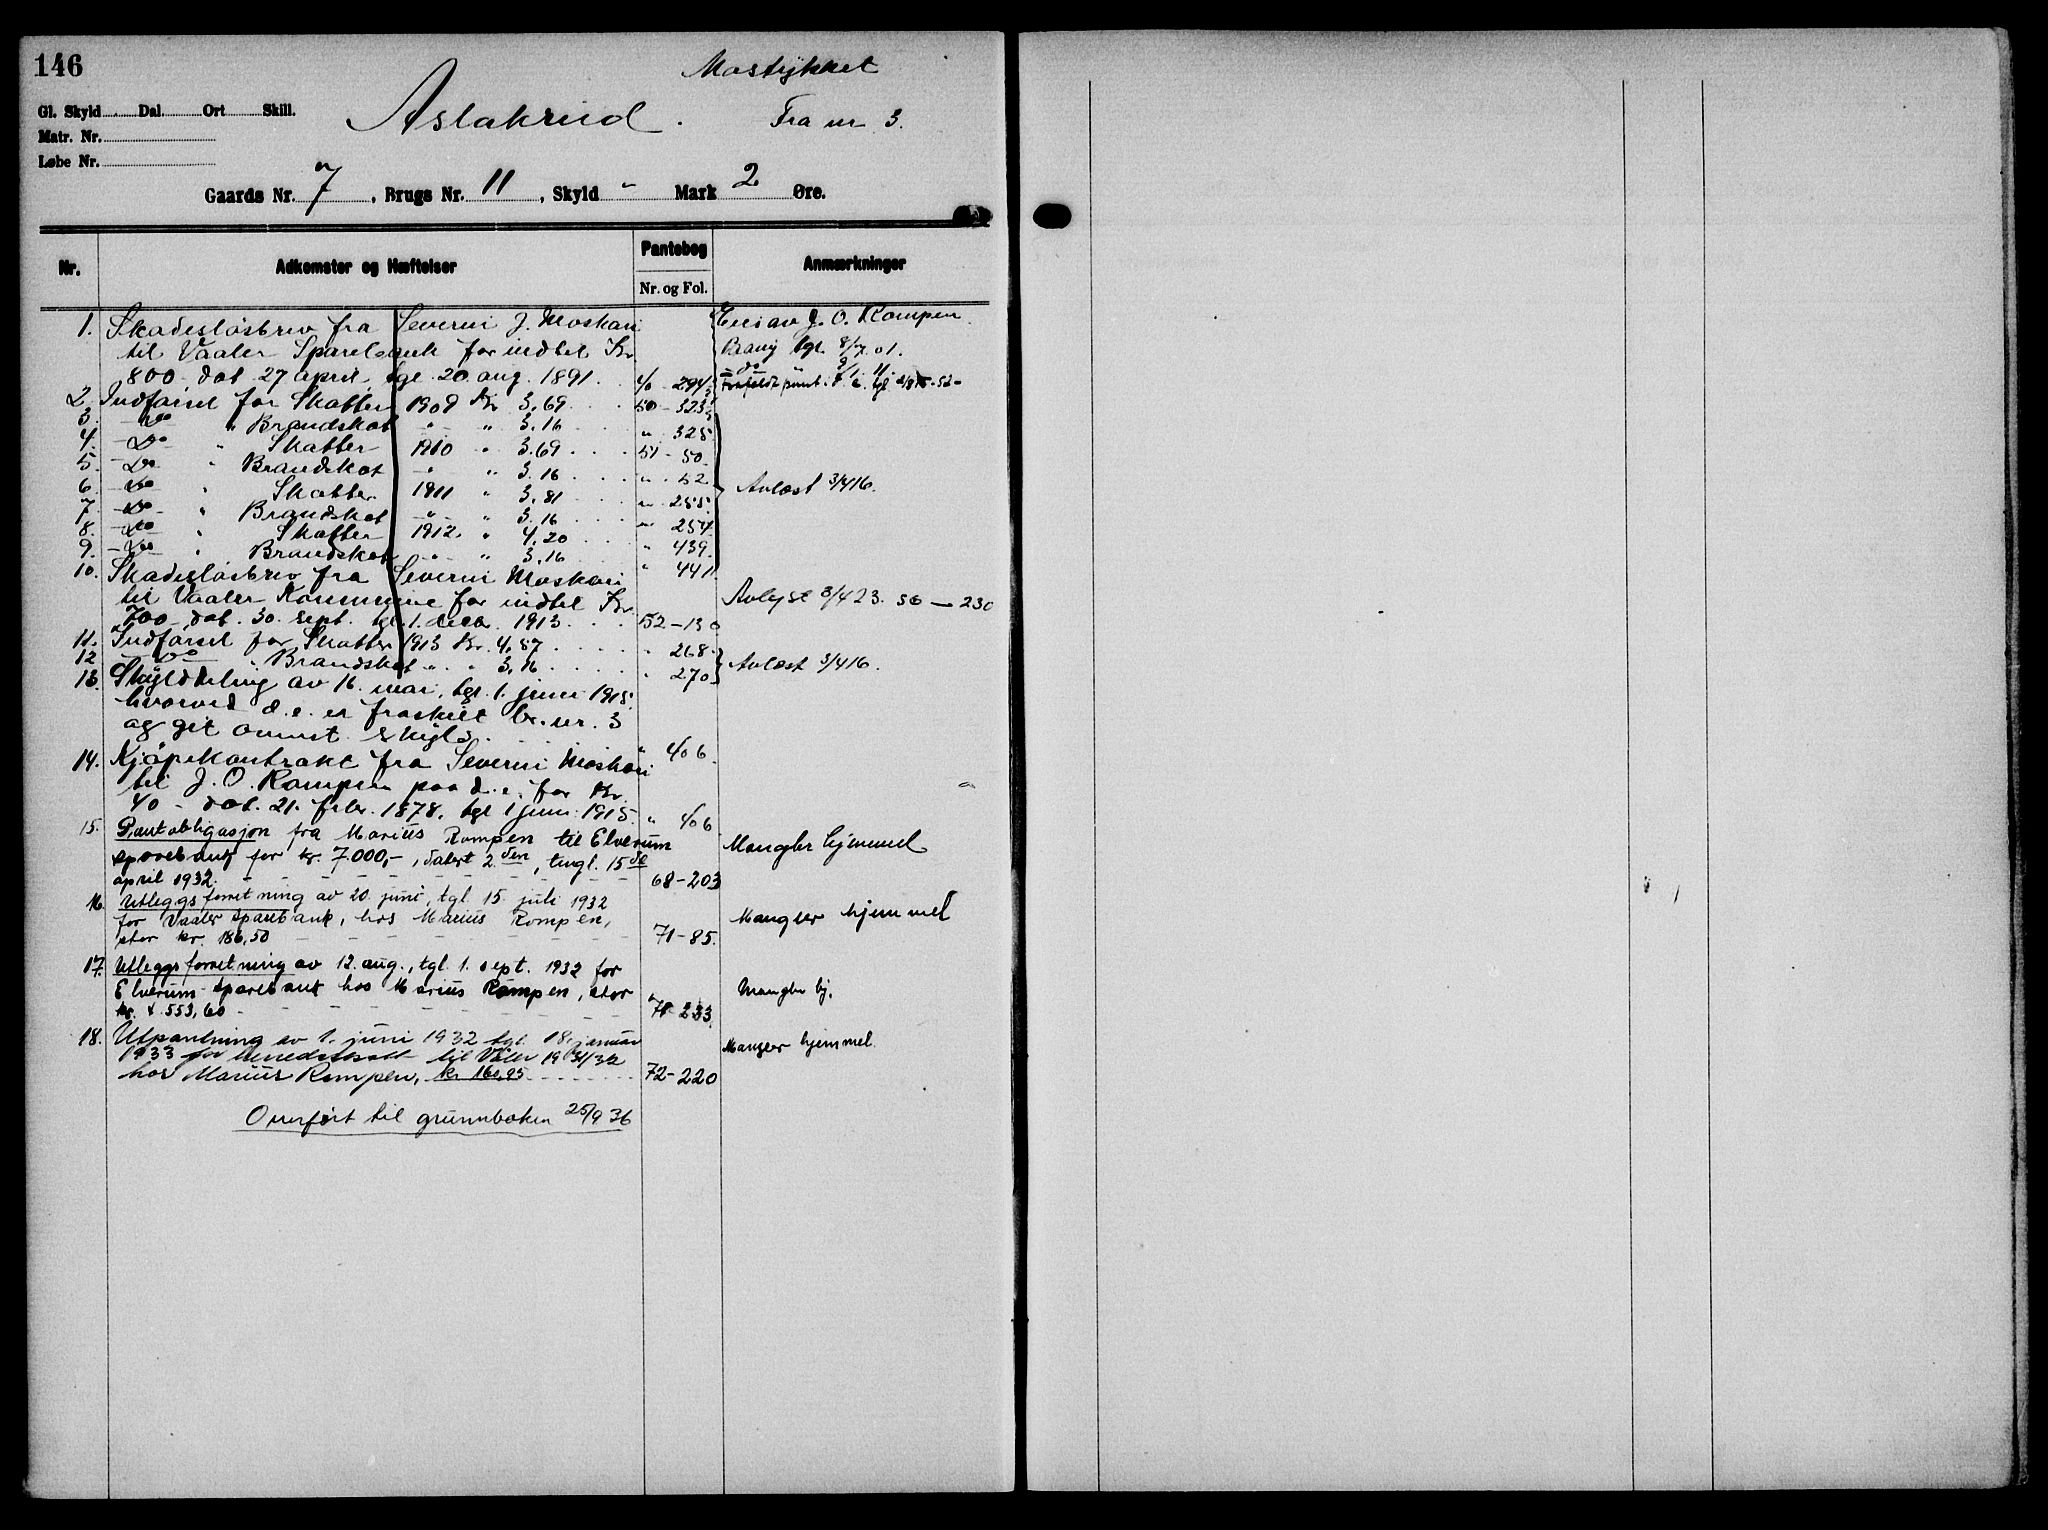 146
Mostykket
Gl. Skyld Dal. Ort Skill.
Aslakrud.
Fra nr 3.
Matr. Nr.
Løbe Nr.
Gaards Nr. 7, Brugs Nr. 11, Skyld " Mark 2 Øre.
Nr. Adkomster og Hæftelser Pantebog Nr. og Fol. Anmærkninger
1. Skadesløsbrev fra Severin J. Moskari Eies av J. O. Rompen
til Vaaler Sparebank for indtil Kr. Brang tgl. 8/7 01.
800 dat. 27 april, tgl. 20 aug. 1891. 40-294
2. Indførsel for Skatter 1909 Kr 3,69 50-323
3. Do " Brandskat " " 3.16 " 325
4. Do " Skatter 1910 " 3.69 51-50
5. Do " Brandskat " " 3.16 " 52
6. Do " Skatter 1911 " 3,81 " 255 Avlæst 3/4 16.
7. Do " Brandskat " " 3.16 " 257
8. Do " Skatter 1912 " 4,20 " 439
9. Do " Brandskat " " 3.16 " 441
10. Skadesløsbrev fra Severin Moskari
til Vaaler Kommune for indtil Kr. Avlyst 3/4 23. 56-230
700 dat. 30. sept. tgl. 1. 1913. 52-130
11. Indførsel for Skatter 1913 Kr. 4,57 " 268
12 Do " Brandskat " " 3,16 " 270 Avlæst 3/4 16.
13. Skylddeling av 16. mai, tgl. 1. juni 1915
hvorved d. e. er fraskilt br. nr. 3
og git omint skyld. " 406
14. Kjøpekontrakt fra Severin Moskari
til J. O. Rompen paa d. e. for Kr.
40 - dat. 21. febr. 1878, tgl 1 juni 1915. " 406
15. Pantobligasjon fra Marius Rompen til Elverum
sparebank for kr. 7.000,-, datert 2den, tingl. 15de Mangler hjemmel
april 1932. 68-203
16. Utleggsforretning av 20 juni, tgl 15. juli 1932
for Vaaler Sparebank, hos Marius Rompen, Mangler hjemmel
stor kr. 186,50 71-85.
17. Utleggsforretning av 12. aug., tgl. 1. sept. 1932 for
Elverum Sparebank hos Marius Rompen, stor Mangler hj.
kr. 553,60 71-233
18. Utpantning av 1. juni 1932 tgl. 18. januar
1933 for til Våler 1931/32 Mangler hjemmel.
hos Marius Rompen, kr 160.95 72-220
Overført til grunnboken 25/9 36